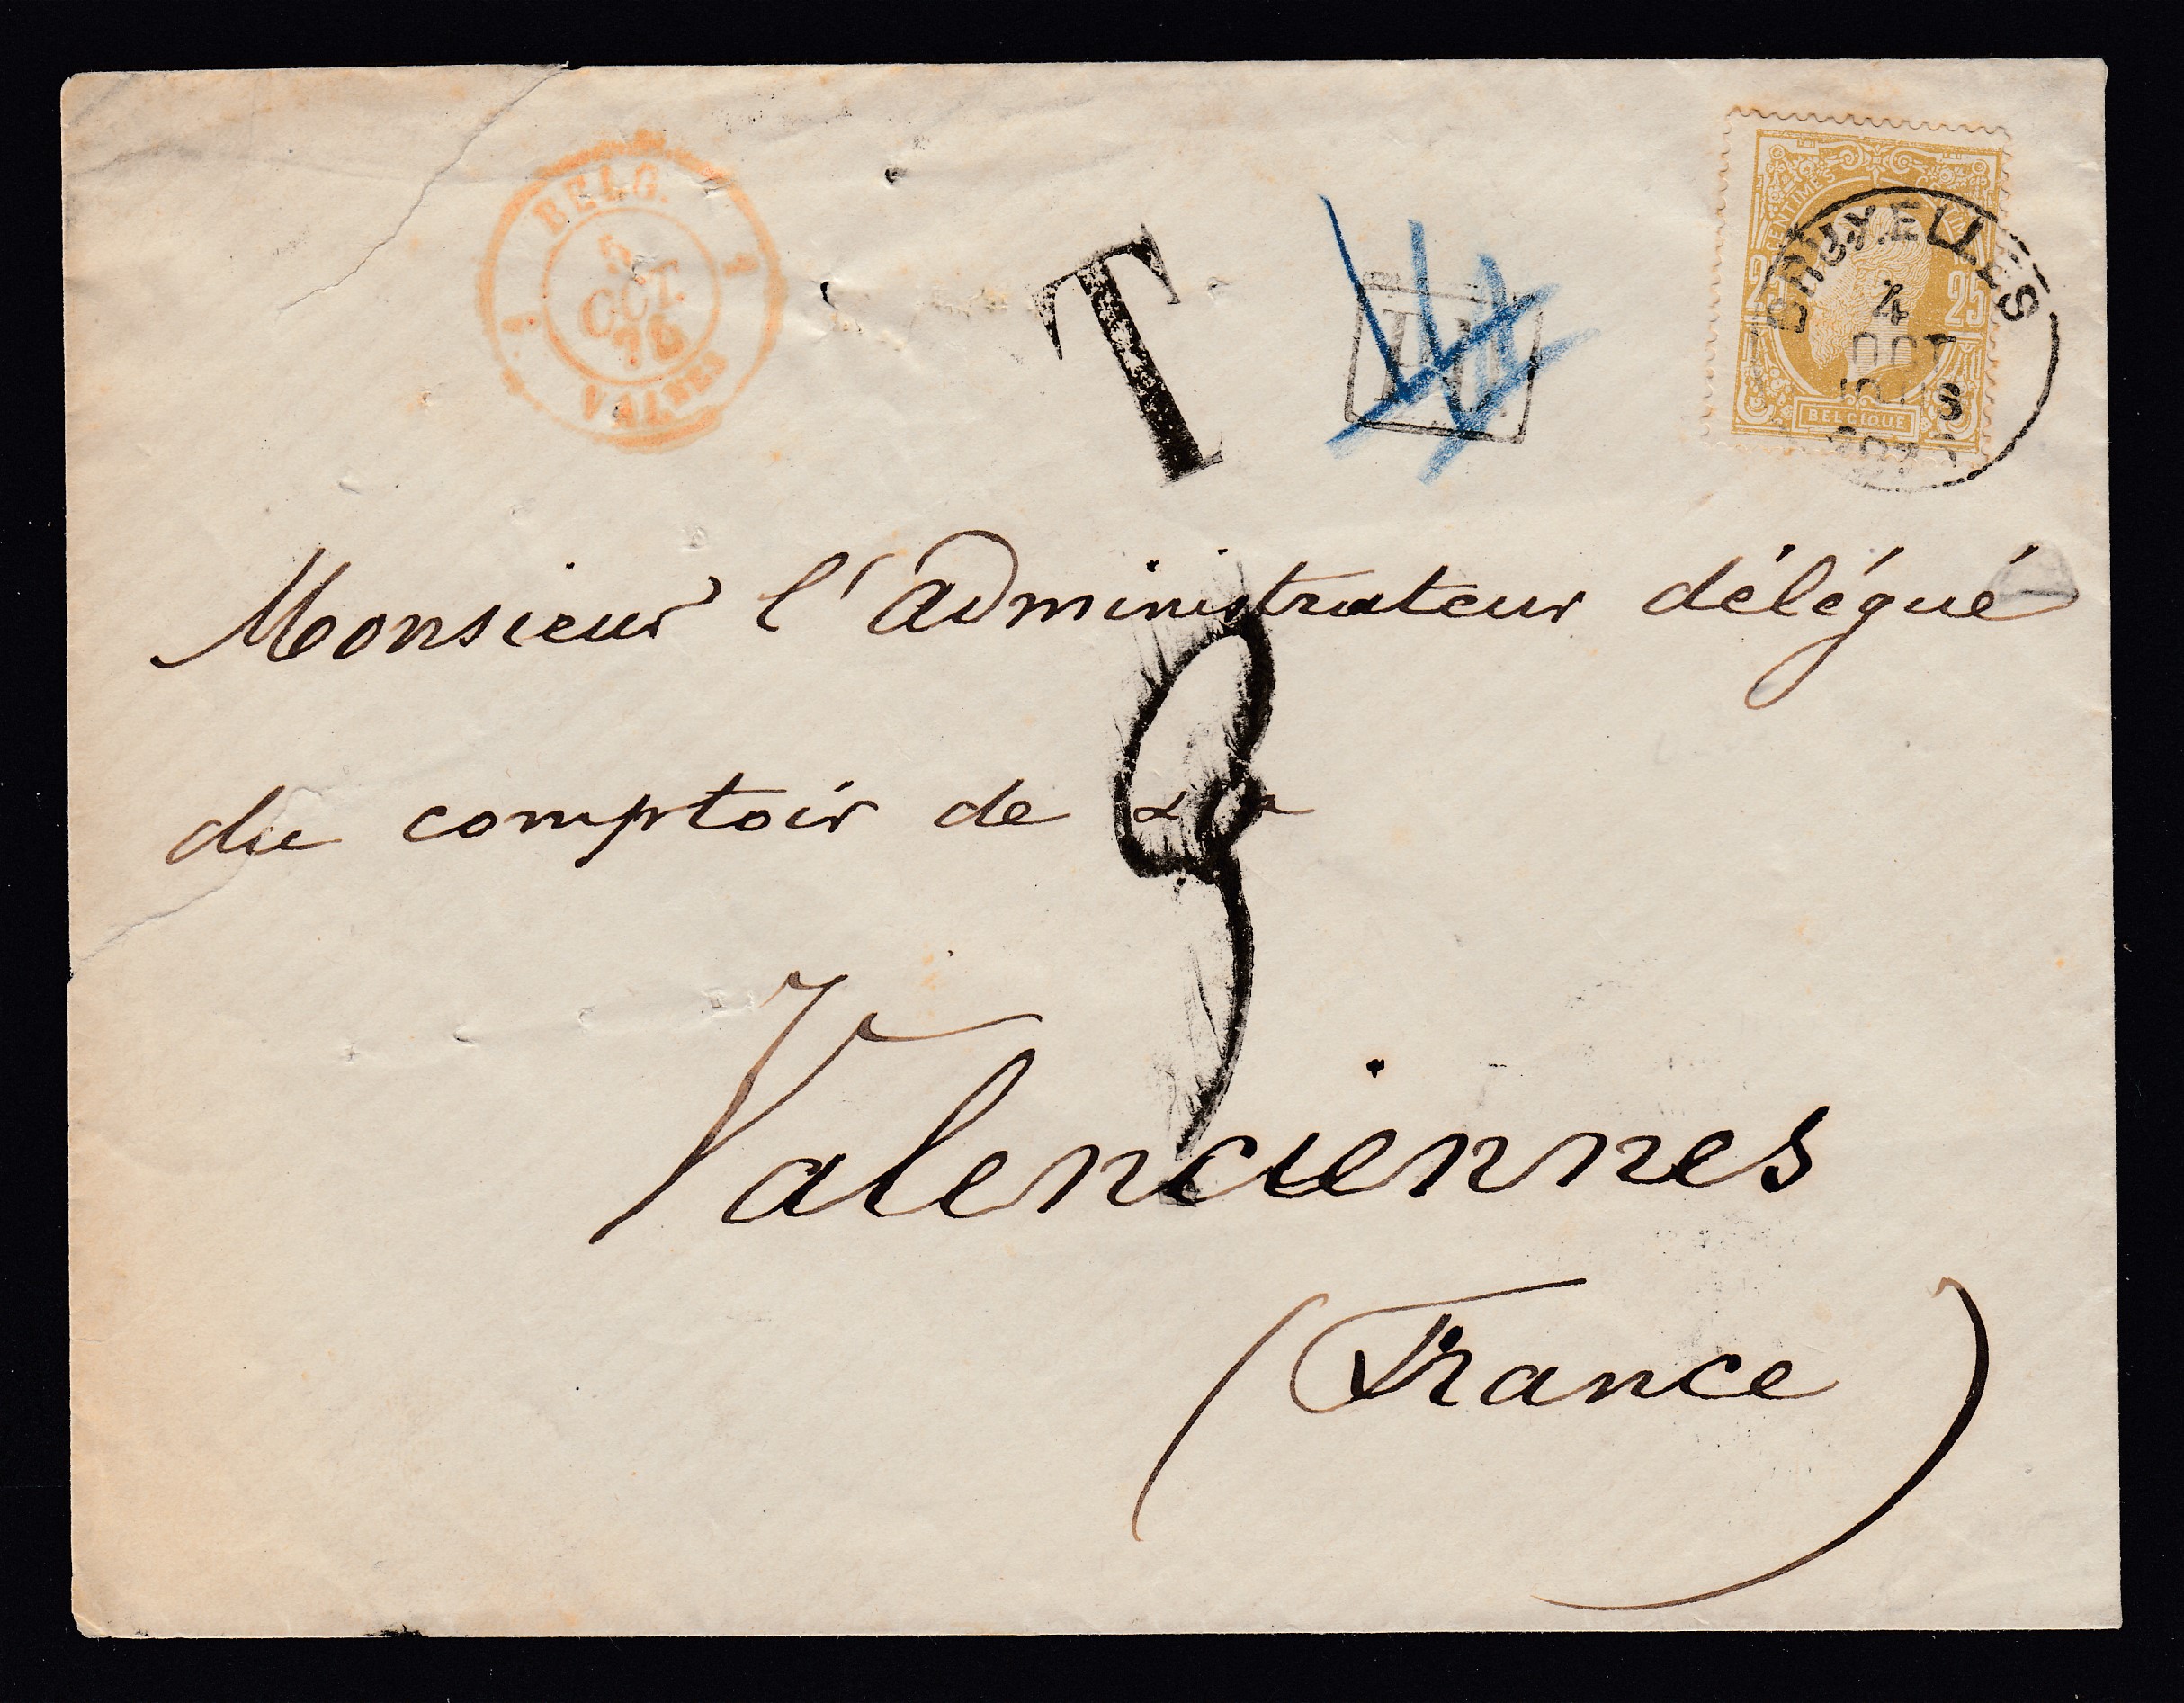 BELG.
5
OCT.
75
VALNES
T
PD
CENTIMES
25
BELGIQUE
BRUXELLES
4
OCT
Monsieur l'administrateur délégué
du comptoir de
3
Valenciennes
(France)